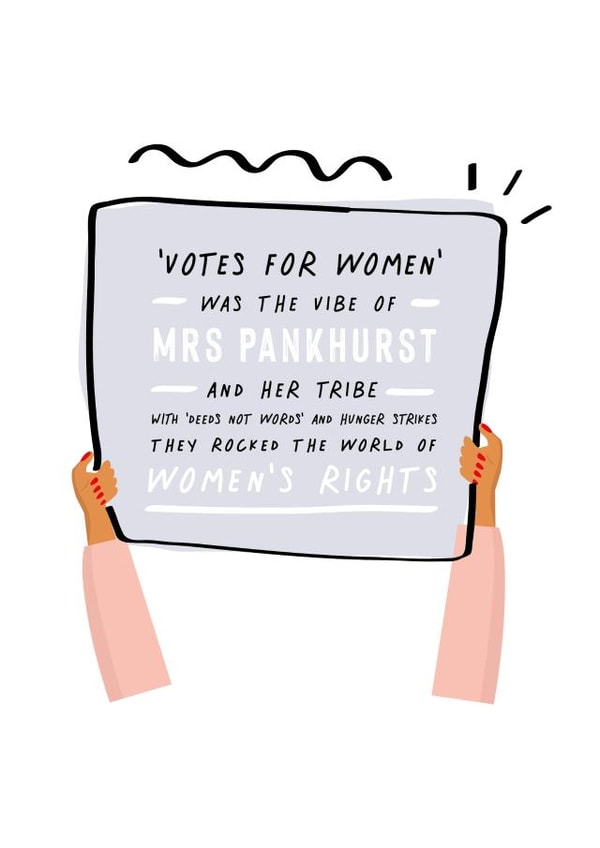 'VOTES FOR WOMEN'
WAS THE VIBE OF
MRS PANKHURST
AND HER TRIBE
WITH 'DEEDS NOT WORDS' AND HUNGER STRIKES
THEY ROCKED THE WORLD OF
WOMEN'S RIGHTS